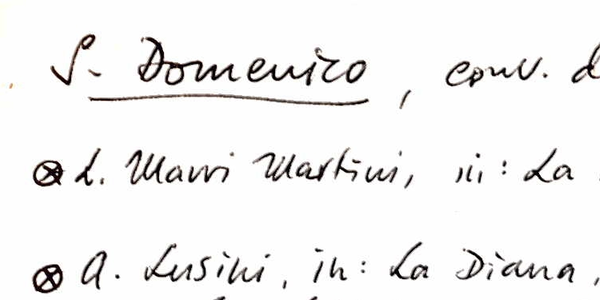 S. Domenico, conv. d
⊗ L. Mauri Martini, in: La
⊗ A. Lusini, in: La Diana,